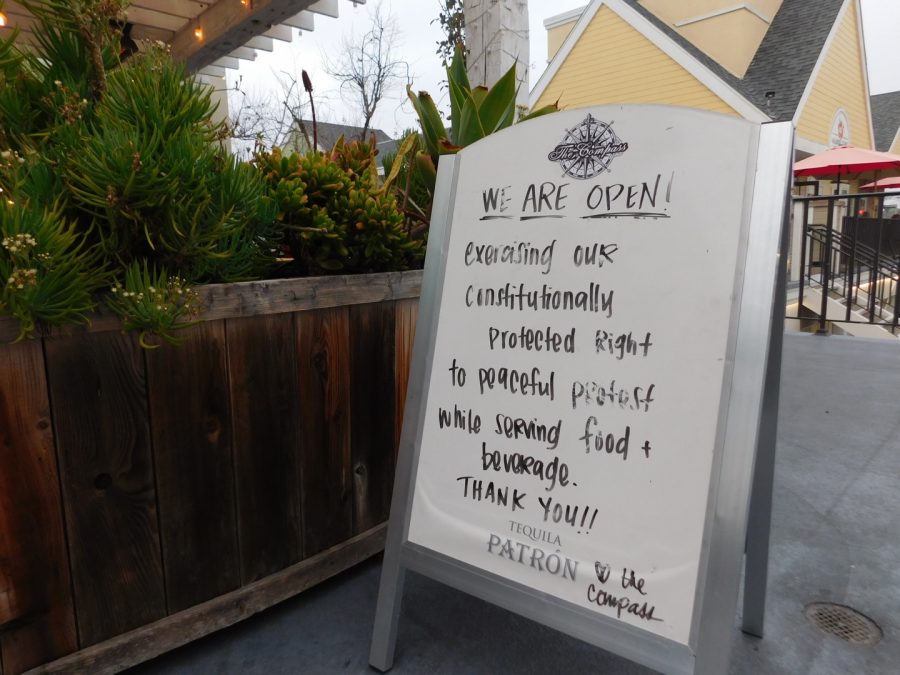 The Compass
WE ARE OPEN!
exercising OUR
constitutionally
protected Right
to peaceful protest
while serving food +
beverage.
THANK YOU!!
TEQUILA
PATRÓN
♡ the
compass